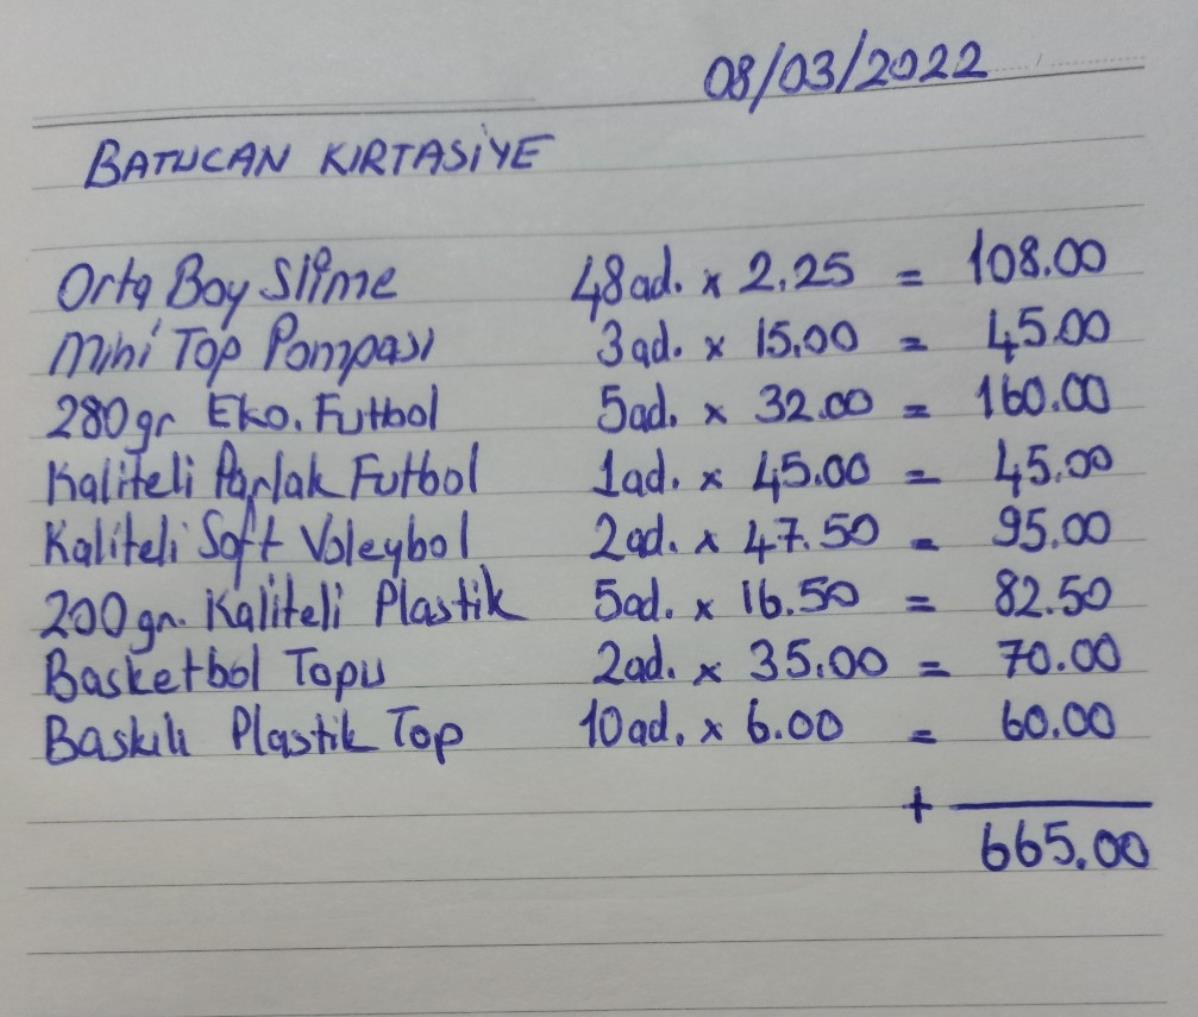 08/03/2022
BATUCAN KIRTASİYE
Orta Boy Slime 48 ad. x 2.25 = 108.00
Mini Top Pompası 3 ad. x 15.00 = 45.00
280 gr Eko. Futbol 5 ad. x 32.00 = 160.00
Kaliteli Parlak Futbol 1 ad. x 45.00 = 45.00
Kaliteli Soft Voleybol 2 ad. x 47.50 = 95.00
200 gr. Kaliteli Plastik 5 ad. x 16.50 = 82.50
Basketbol Topu 2 ad. x 35.00 = 70.00
Baskılı Plastik Top 10 ad. x 6.00 = 60.00
+
665.00